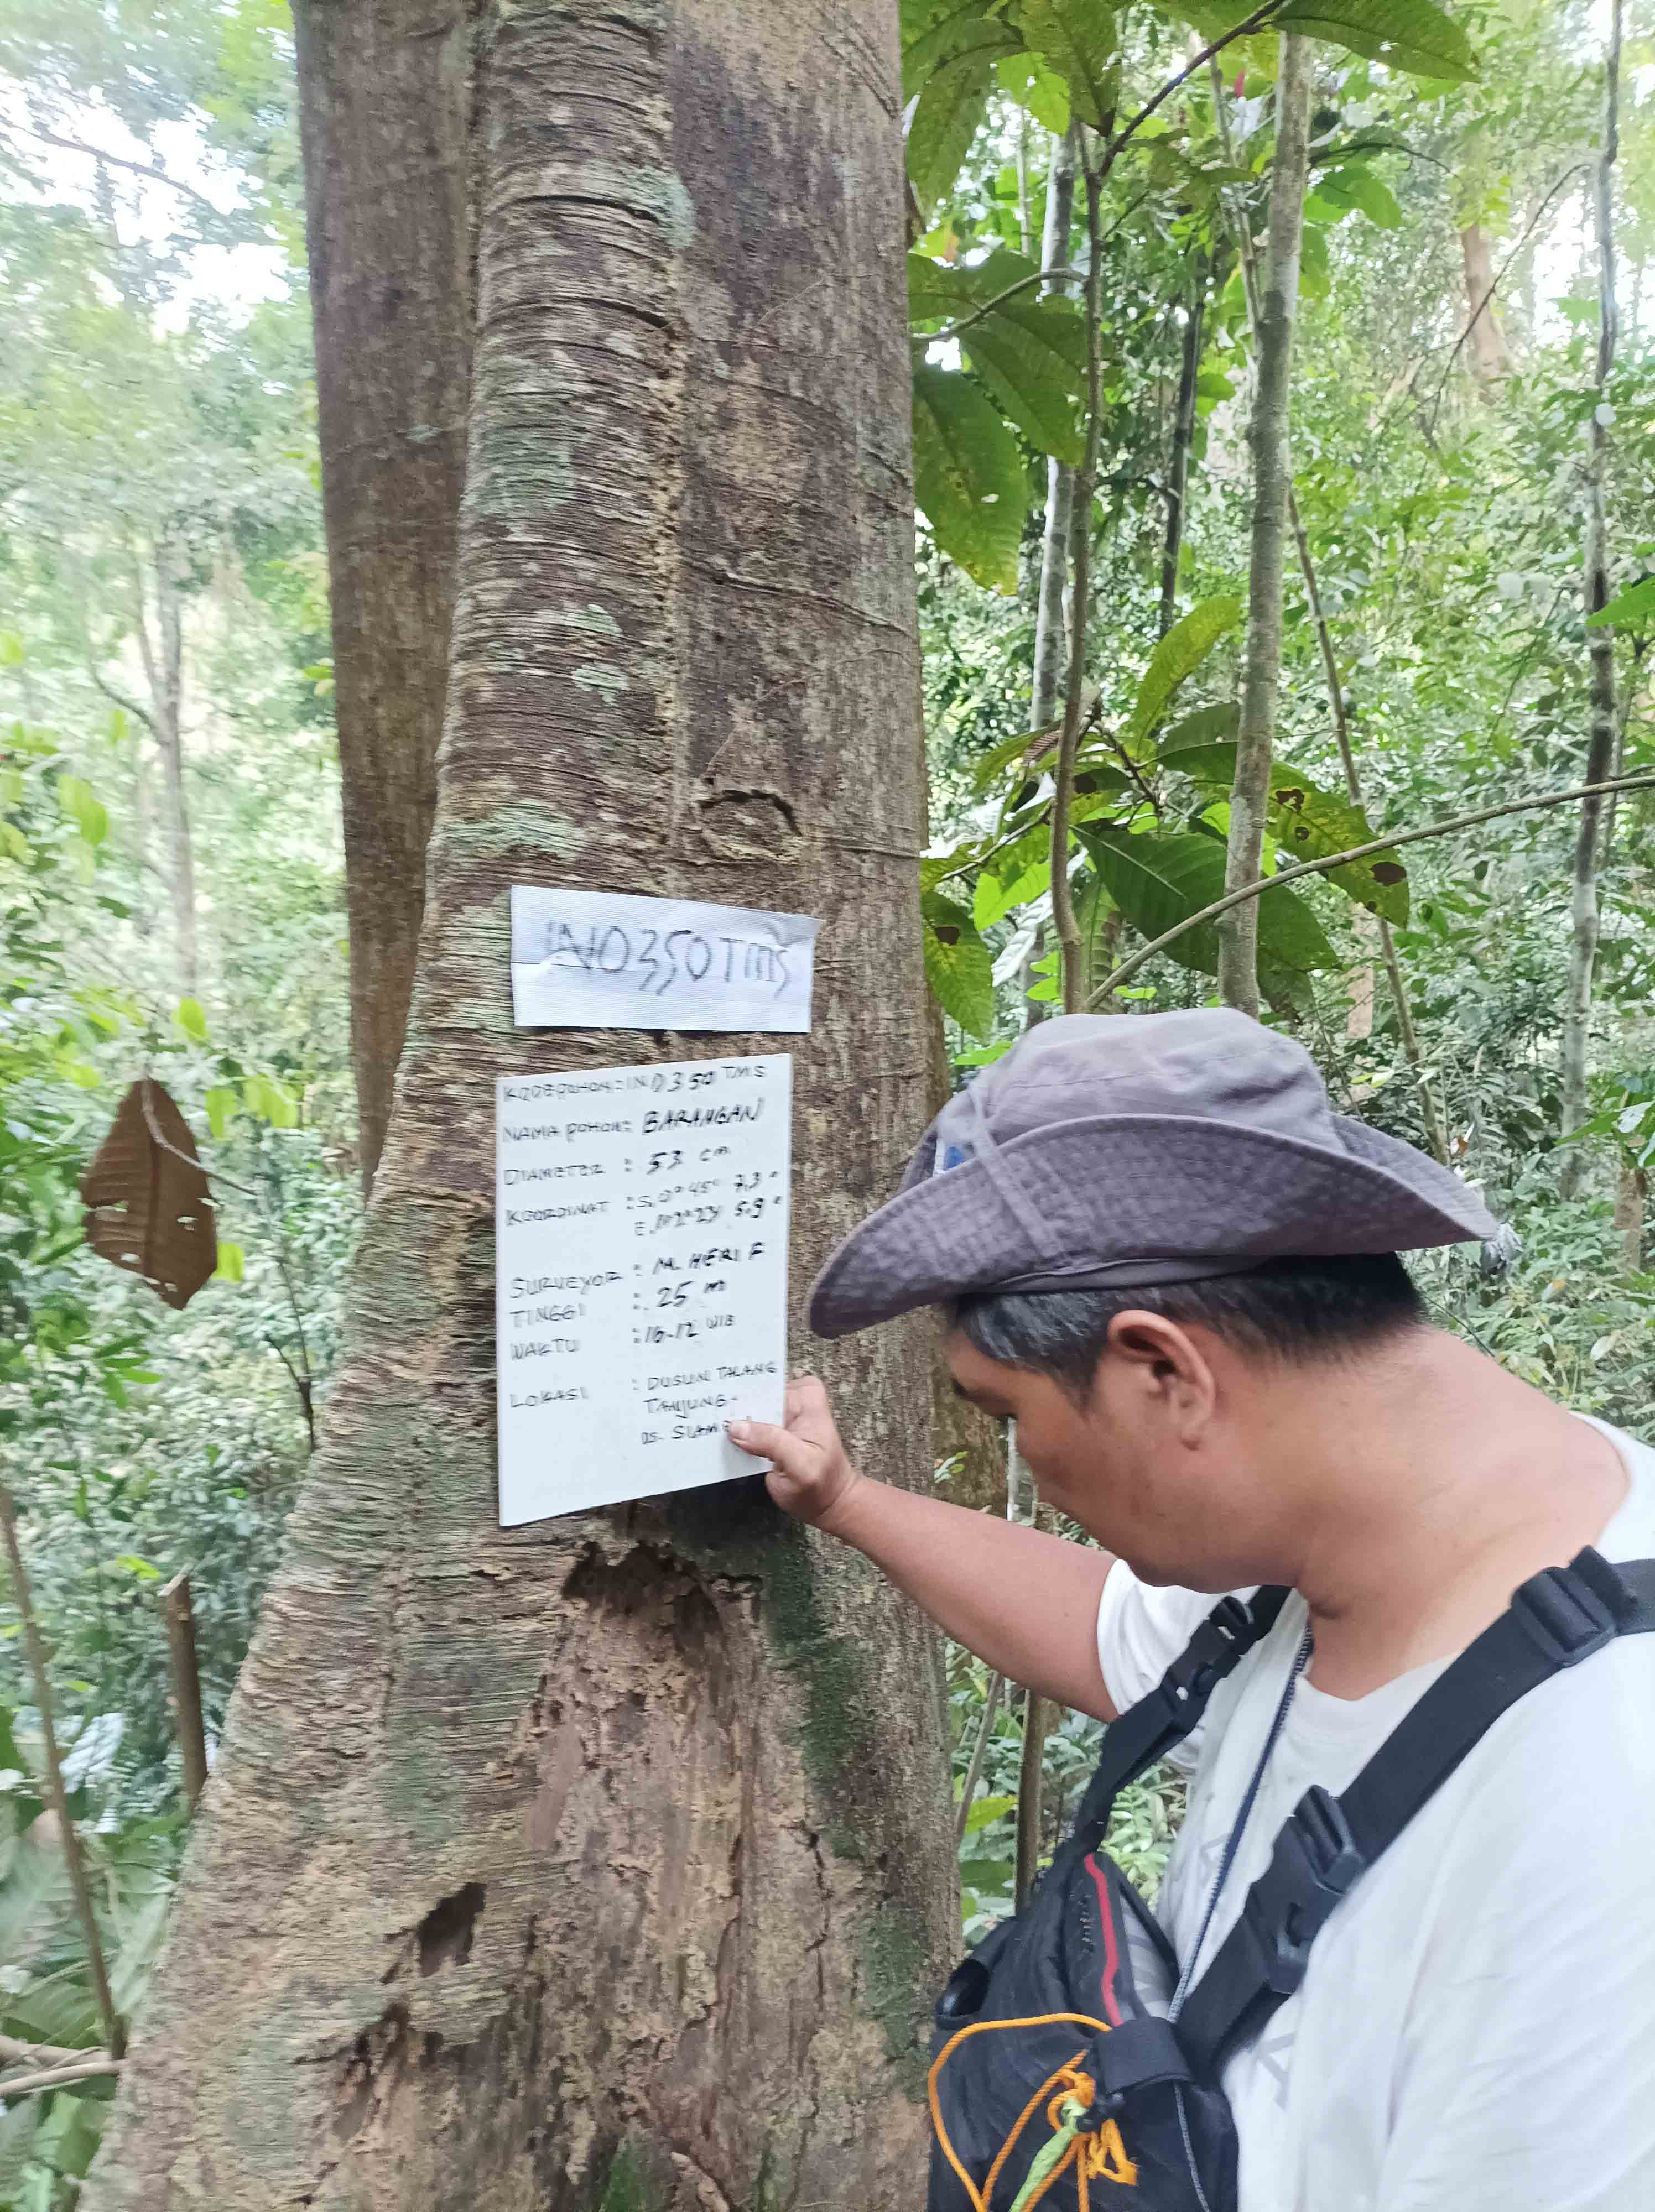 IN0350TMS
KODE POHON : IN 0350 TMS
NAMA POHON : BARANGAN
DIAMETER : 53 cm
KOORDINAT : S. 0° 45' 7,3"
E. 102° 23' 5.9"
SURVEYOR : M. HERI F
TINGGI : 25 m
WAKTU : 16-12 WIB
LOKASI : DUSUN TALANG
TANJUNG-